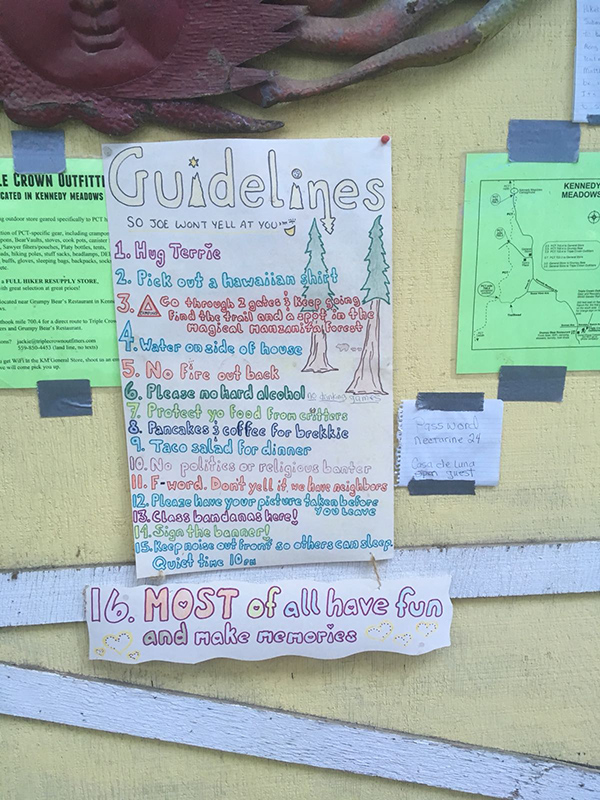 Guidelines
SO JOE WON'T YELL AT YOU
1. Hug Terrie
2. Pick out a hawaiian shirt
3. Go through 2 gates & keep going
find the trail and a spot in the
magical manzanita forest
4. Water on side of house
5. No fire out back
6. Please no hard alcohol no drinking games
7. Protect yo food from critters
8. Pancakes & coffee for brekkie
9. Taco salad for dinner
10. No politics or religious banter
11. F-word. Don't yell it, we have neighbors
12. Please have your picture taken before
you leave
13. Class bandanas here!
14. Sign the banner!
15. Keep noise out front so others can sleep
Quiet time 10pm
16. MOST of all have fun
and make memories
LE CROWN OUTFITT
CATED IN KENNEDY MEADOWS
ng outdoor store geared specifically to PCT
ction of PCT-specific gear, including crampon
pons, BearVaults, stoves, cook pots, canister
, Sawyer filters/pouches, Platy bottles, tents,
ads, hiking poles, stuff sacks, headlamps, DE
bulls, gloves, sleeping bags, backpacks, socks
FULL HIKER RESUPPLY STORE,
with great selection at great prices!
located near Grumpy Bear's Restaurant in Kenne
thook mile 700.4 for a direct route to Triple Crow
ers and Grumpy Bear's Restaurant.
jackie@triplecrownoutfitters.com
559-850-4453 (land line, no texts)
get WiFi in the KM General Store, shoot us an
we will come pick you up.
KENNEDY
MEADOWS
Pass word
Nectarine 24
Casa de Luna
guest